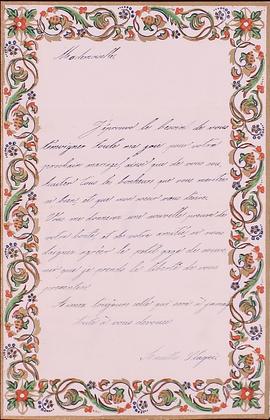 Mademoiselle,
J'éprouve le besoin de vous
témoigner toute ma joie pour votre
prochain mariage, ainsi que de vous sou-
haiter tous les bonheurs que vous méritez
si bien, et que mon cœur vous désire.
Vous me donnerez une nouvelle preuve de
votre bonté, et de votre amitié, si vous
daignez agréer le petit gage de souve-
nir que je prends la liberté de vous
présenter.
Aimez toujours celle qui sera à jamais
toute à vous dévouée